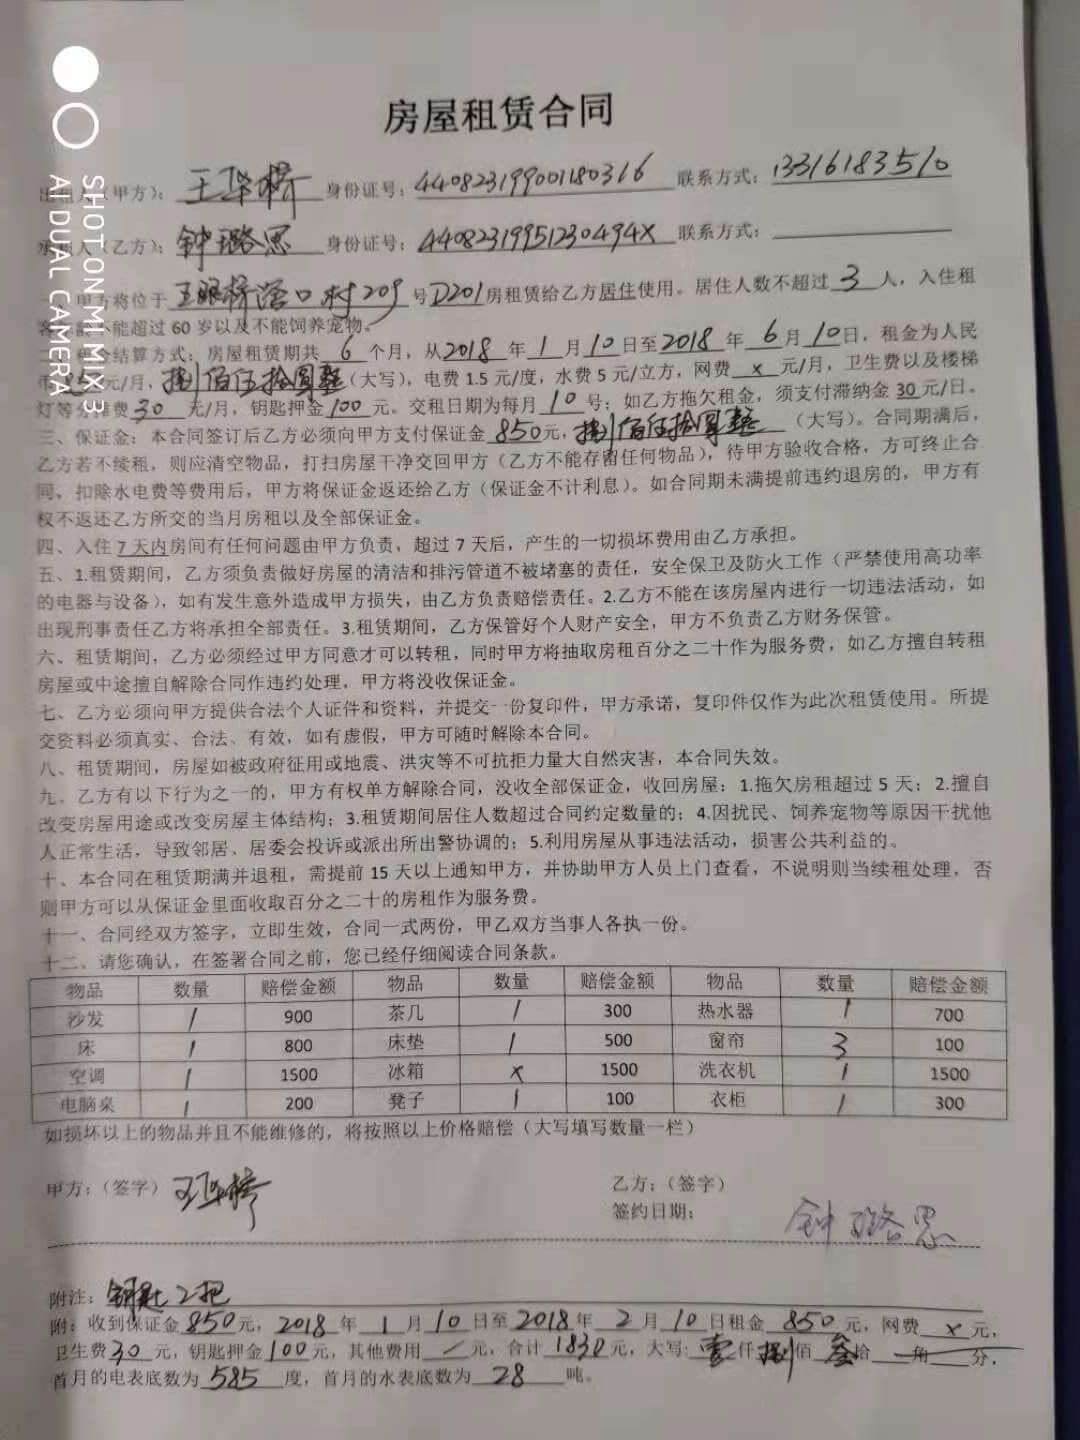 房屋租赁合同
出租人(甲方): 王华桥 身份证号: 440823199001180316 联系方式: 13316183510
承租人(乙方): 钟璐思 身份证号: 44082319951230494X 联系方式:
一、甲方将位于 口村209号D201房租赁给乙方居住使用。居住人数不超过 3 人，入住租
客 不能超过 60 岁以及不能饲养宠物。
二、租金结算方式: 房屋租赁期共 6 个月，从2018 年 1 月 10 日至 2018 年 6 月 10日，租金为人民
币850元/月，捌佰伍拾圆整(大写)，电费 1.5 元/度，水费 5 元/立方，网费 x 元/月，卫生费以及楼梯
灯等分摊费 30 元/月，钥匙押金 100 元。交租日期为每月 10 号；如乙方拖欠租金，须支付滞纳金 30 元/日。
三、保证金: 本合同签订后乙方必须向甲方支付保证金 850元，捌佰伍拾圆整 (大写)。合同期满后，
乙方若不续租，则应清空物品，打扫房屋干净交回甲方（乙方不能存留任何物品），待甲方验收合格，方可终止合
同，扣除水电费等费用后，甲方将保证金返还给乙方（保证金不计利息）。如合同期未满提前违约退房的，甲方有
权不返还乙方所交的当月房租以及全部保证金。
四、入住 7 天内房间有任何问题由甲方负责，超过 7 天后，产生的一切损坏费用由乙方承担。
五、1.租赁期间，乙方须负责做好房屋的清洁和排污管道不被堵塞的责任，安全保卫及防火工作（严禁使用高功率
的电器与设备），如有发生意外造成甲方损失，由乙方负责赔偿责任。2.乙方不能在该房屋内进行一切违法活动，如
出现刑事责任乙方将承担全部责任。3.租赁期间，乙方保管好个人财产安全，甲方不负责乙方财务保管。
六、租赁期间，乙方必须经过甲方同意才可以转租，同时甲方将抽取房租百分之二十作为服务费，如乙方擅自转租
房屋或中途擅自解除合同作违约处理，甲方将没收保证金。
七、乙方必须向甲方提供合法个人证件和资料，并提交一份复印件，甲方承诺，复印件仅作为此次租赁使用。所提
交资料必须真实、合法、有效，如有虚假，甲方可随时解除本合同。
八、租赁期间，房屋如被政府征用或地震、洪灾等不可抗拒力量大自然灾害，本合同失效。
九、乙方有以下行为之一的，甲方有权单方解除合同，没收全部保证金，收回房屋：1.拖欠房租超过 5 天；2.擅自
改变房屋用途或改变房屋主体结构；3.租赁期间居住人数超过合同约定数量的；4.因扰民、饲养宠物等原因干扰他
人正常生活，导致邻居、居委会投诉或派出所出警协调的；5.利用房屋从事违法活动，损害公共利益的。
十、本合同在租赁期满并退租，需提前 15 天以上通知甲方，并协助甲方人员上门查看，不说明则当续租处理，否
则甲方可以从保证金里面收取百分之二十的房租作为服务费。
十一、合同经双方签字，立即生效，合同一式两份，甲乙双方当事人各执一份。
十二、请您确认，在签署合同之前，您已经仔细阅读合同条款。
物品 数量 赔偿金额 物品 数量 赔偿金额 物品 数量 赔偿金额
沙发 1 900 茶几 1 300 热水器 1 700
床 1 800 床垫 1 500 窗帘 3 100
空调 1 1500 冰箱 x 1500 洗衣机 1 1500
电脑桌 1 200 凳子 1 100 衣柜 1 300
如损坏以上的物品并且不能维修的，将按照以上价格赔偿（大写填写数量一栏）
甲方:（签字）王华桥 乙方:（签字）
签约日期: 钟璐思
附注: 钥匙2把
附: 收到保证金 850元，2018 年 1 月 10 日至 2018 年 2 月 10 日租金 850 元，网费 x 元，
卫生费 30 元，钥匙押金 100 元，其他费用 / 元，合计 1830 元，大写: 壹仟捌佰 叁拾 — 角 — 分，
首月的电表底数为 585 度，首月的水表底数为 28 吨。
SHOT ON MI MIX 3
AI DUAL CAMERA